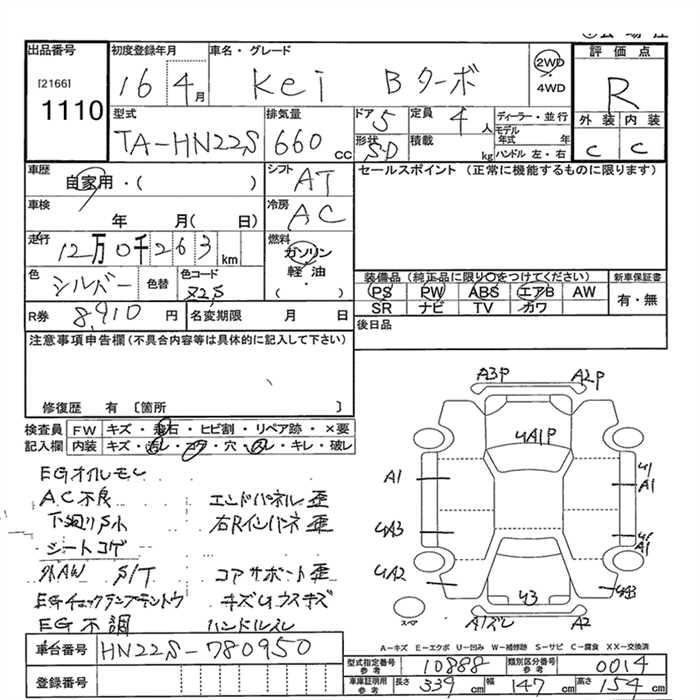 出品番号
[2166]
1110
初度登録年月
16 4月
車名・グレード
Kei Bターボ
2WD
・
4WD
評価点
R
外装 内装
C C
型式
TA-HN22S
排気量
660 cc
ドア
5
形状
5D
定員
4人
積載
kg
ディーラー・並行
モデル年式 年
ハンドル 左・右
車歴
自家用・( )
シフト
AT
セールスポイント (正常に機能するものに限ります)
車検
年 月( 日)
冷房
AC
走行
12万0千263km
燃料
ガソリン
軽油・
( )
色
シルバー
色替
色コード
Z2S
装備品(純正品に限り○をつけてください)
新車保証書
PS PW ABS エアB AW
SR ナビ TV カワ
有・無
R券
8,910円
名変期限 月 日
後日品
注意事項申告欄(不具合内容等は具体的に記入して下さい)
修復歴 有 〔箇所 〕
検査員記入欄
FW キズ・飛石・ヒビ割・リペア跡・×要
内装 キズ・汚レ・コゲ・穴・スレ・キレ・破レ
EGオイルモレ
AC不良 エンドパネル歪
下廻りS小 右Rインパネ歪
シートコゲ
外AW S/T コアサポート歪
EGチェックランプテントウ キズUウスキズ
EG不調 ハンドルスレ
A3P
A2P
4A1P
A1
4A3
4A2
U1
A1
A1
U3
A1ズレ
A2
スペア
A-キズ E-エクボ U-凹み W-補修跡 S-サビ C-腐食 XX-交換済
車台番号
HN22S-780950
登録番号
型式指定番号
参考
10888
類別区分番号
参考
0014
車庫証明用
参考
長さ 339cm 幅 147cm 高さ 154cm